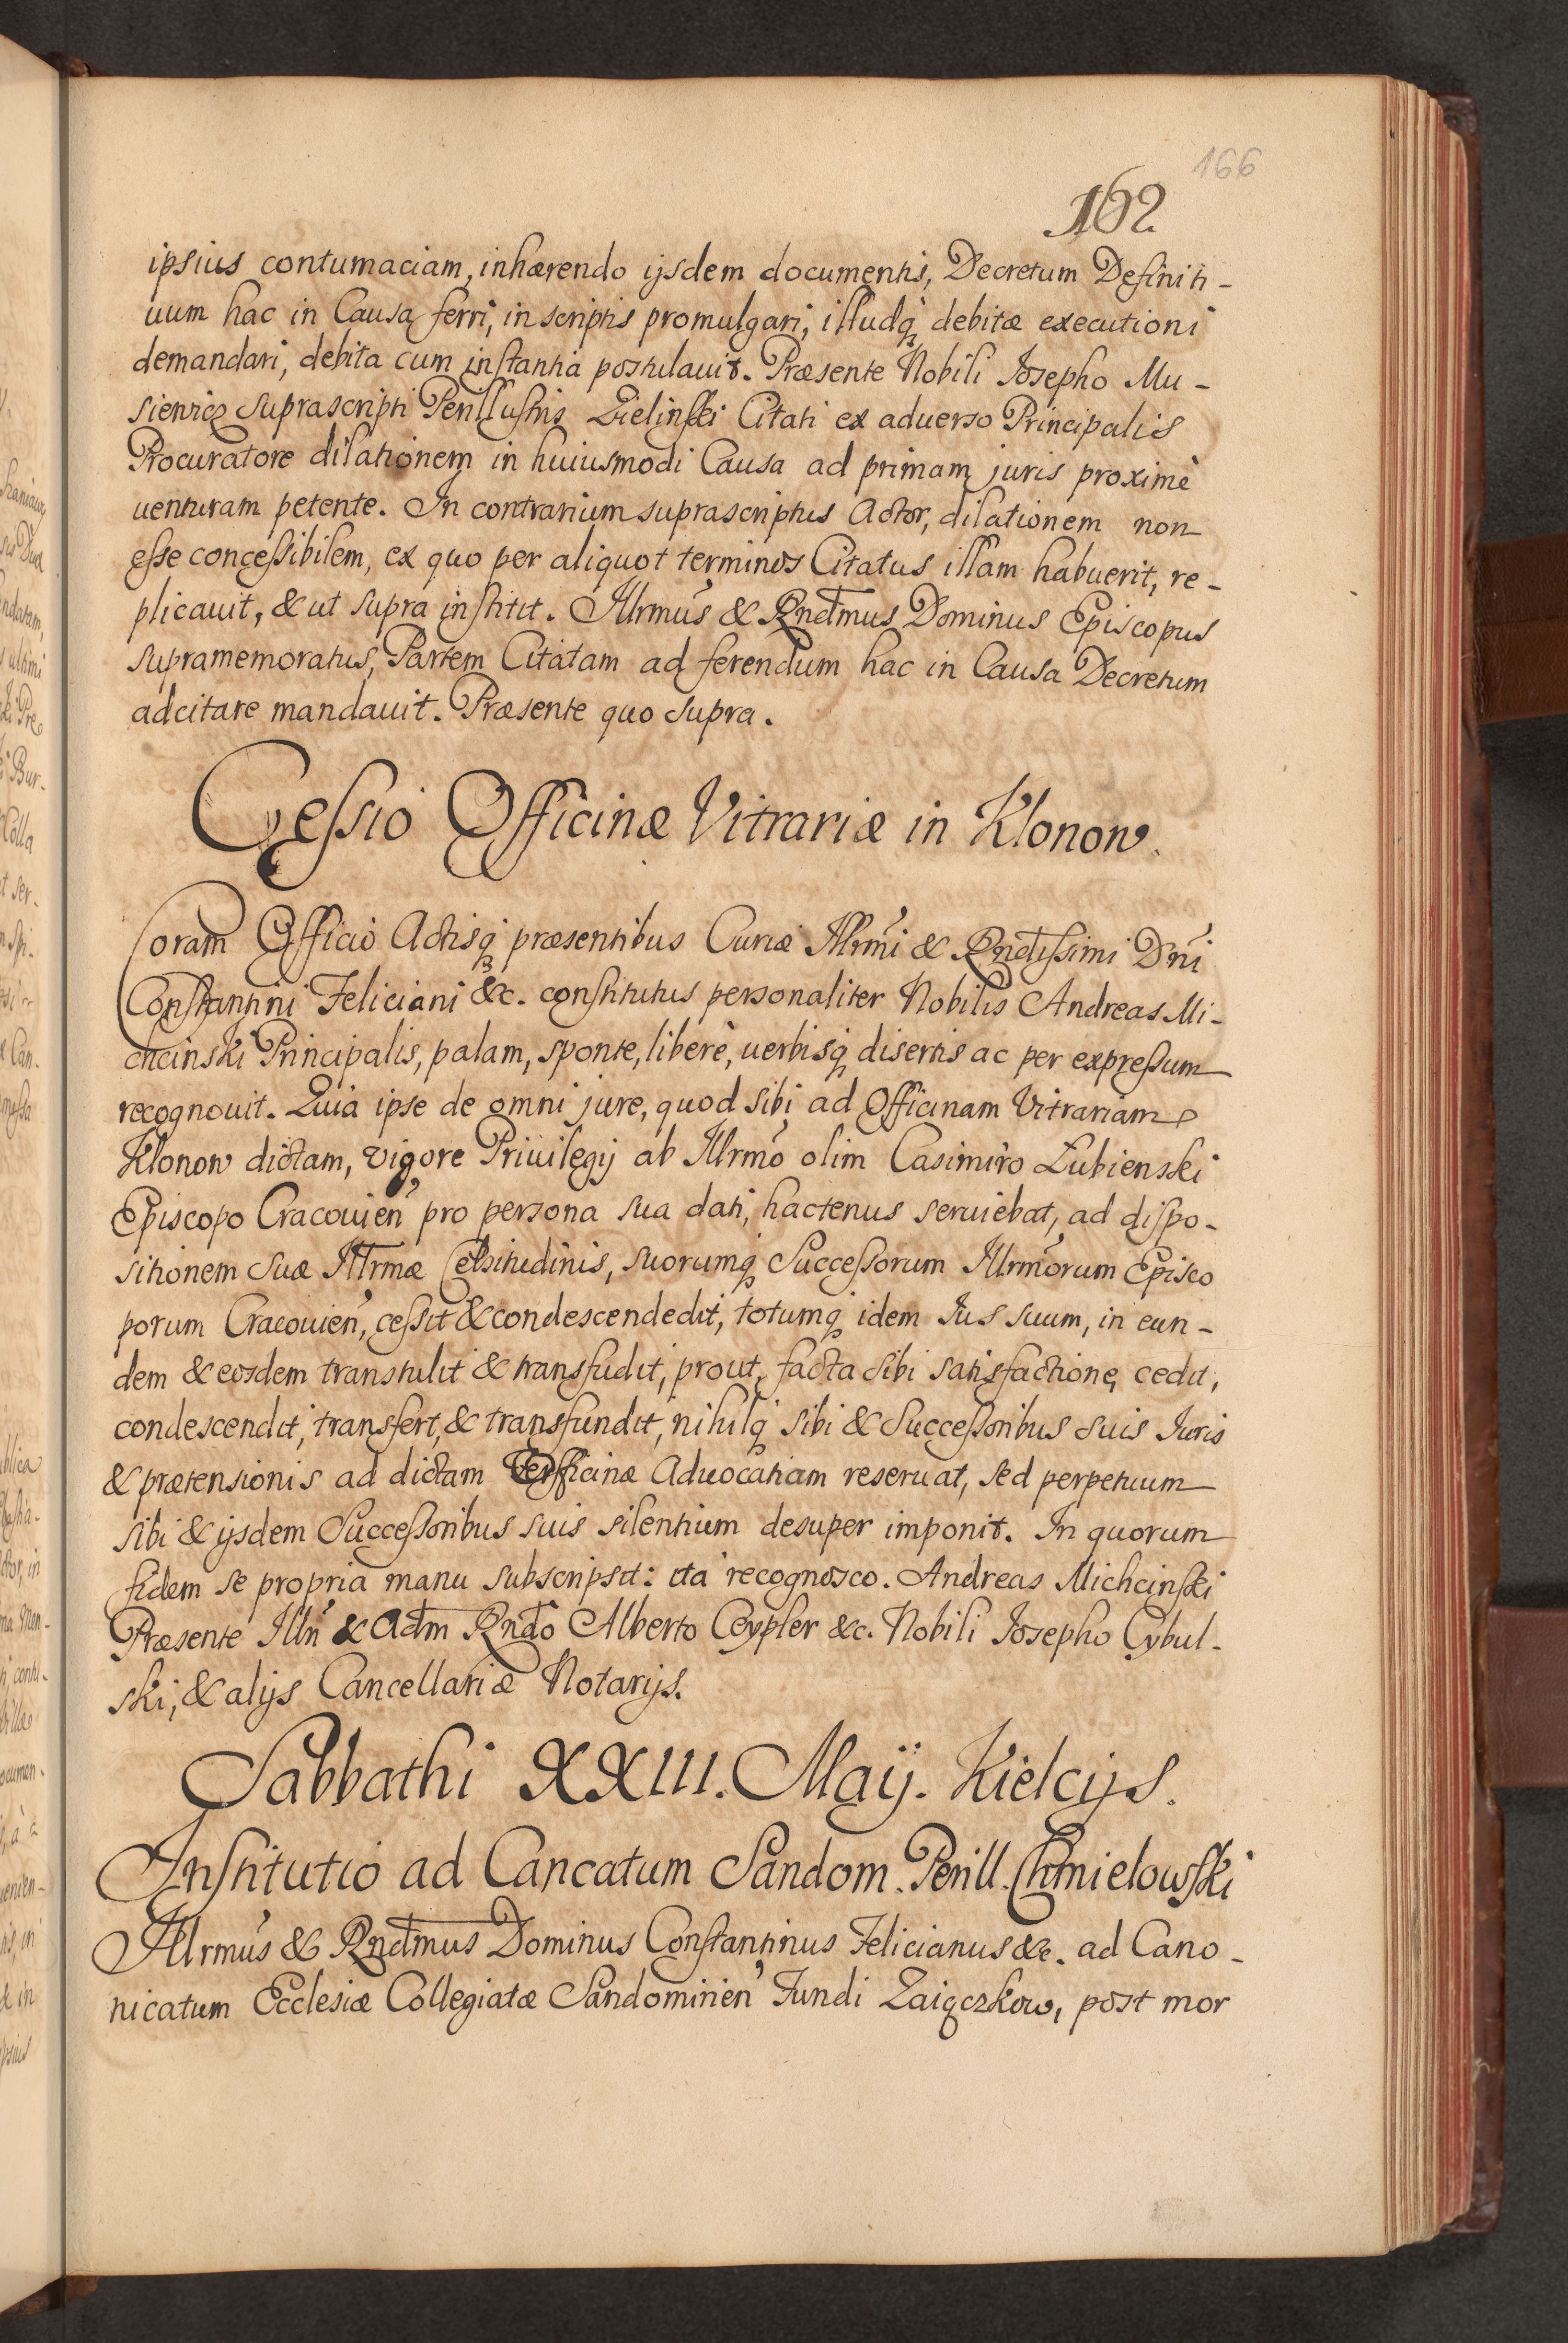 166
162
ipsius contumaciam, inhærendo ijsdem documentis, Decretum Definiti-
uum hac in Causa ferri, in scriptis promulgari, illudq́ debitæ executioni
demandari, debita cum instantia postulauit. Præsente Nobili Josepho Mu-
sienicz suprascripti Perillustris Zielinski Citati ex aduerso Principalis
Procuratore dilationem in huiusmodi Causa ad primam juris proximè
uenturam petente. In contrarium suprascriptus Actor, dilationem non
esse concessibilem, ex quo per aliquot terminos Citatus illam habuerit, re-
plicauit, & ut supra institit. Illrmus & Rndmus Dominus Episcopus
supramemoratus, Partem Citatam ad ferendum hac in Causa Decretum
adcitare mandauit. Præsente quo supra.
Cessio Officinæ Vitrariæ in Klonow.
Coram Officio Actisq́ præsentibus Curiæ Illrmi & Rndissimi Dni
Constantini Feliciani &c. constitutus personaliter Nobilis Andreas Mi-
chcinski Principalis, palam, sponte, liberè, uerbisq́ disertis ac per expressum
recognouit. Quia ipse de omni jure, quod sibi ad Officinam Vitrariam
Klonow dictam, vigore Priuilegij ab Illrmo olim Casimiro Łubienski
Episcopo Cracouien̄ pro persona sua dati, hactenus seruiebat, ad dispo-
sitionem suæ Illrmæ Celsitudinis, suorumq́ Successorum Illrmorum Episco
porum Cracouien̄, cessit & condescendedit, totumq́ idem Jus suum, in eun-
dem & eosdem transtulit & transfudit, prout, facta sibi satisfactione, cedit,
condescendit, transfert, & transfundit, nihilq́ sibi & Successoribus suis Juris
& prætensionis ad dictam Officinæ Aduocatiam reseruat, sed perpetuum
sibi & ijsdem Successoribus suis silentium desuper imponit. In quorum
fidem se propria manu subscripsit: ita recognosco. Andreas Michcinski
Præsente Illri & Adm Rndo Alberto Ceypler &c. Nobili Josepho Cybul-
ski, & alijs Cancellariæ Notarijs.
Sabbathi XXIII. Maij. Kielcijs.
Institutio ad Cancatum Sandom. Perill. Chmielowski
Illrmus & Rndmus Dominus Constantinus Felicianus &c. ad Cano-
nicatum Ecclesiæ Collegiatæ Sandomirien̄ Fundi Zaiączkow, post mor